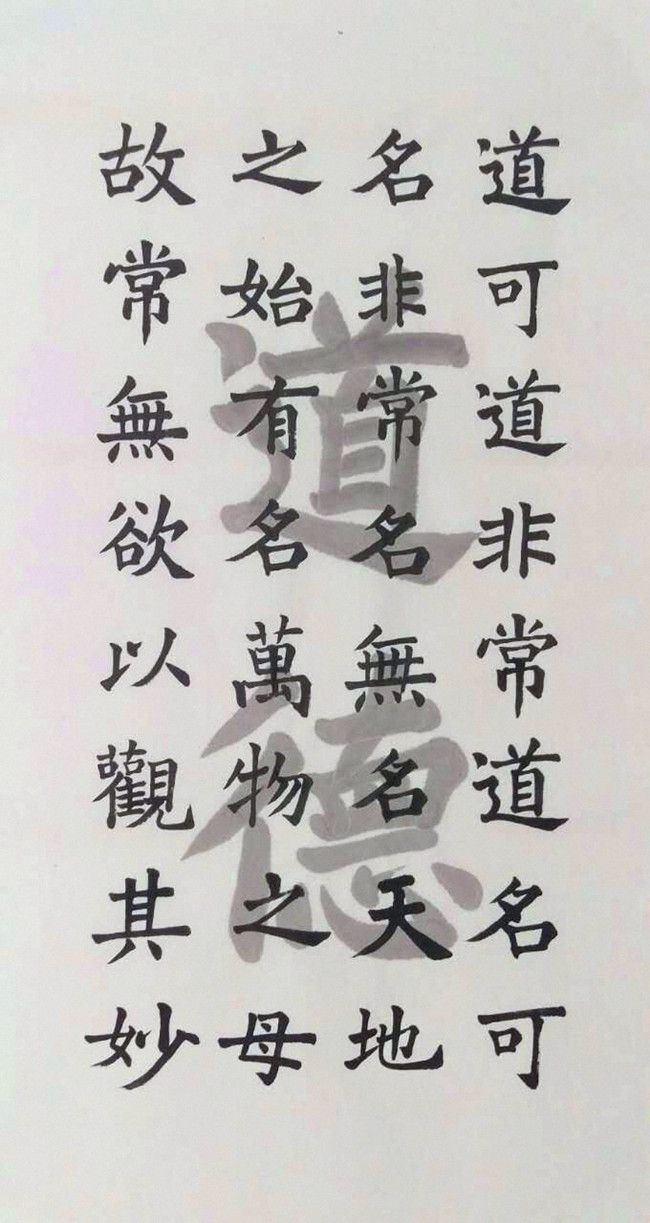 道可道非常道名可
名非常名無名天地
之始有名萬物之母
故常無欲以觀其妙
道德